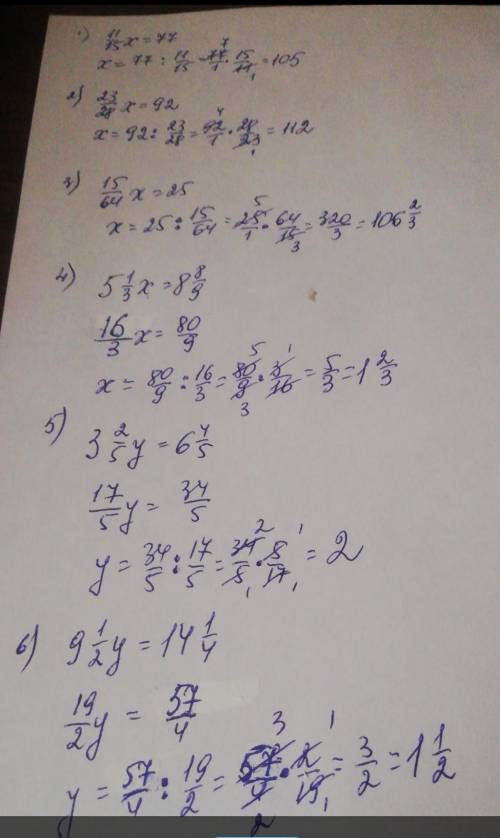 1) 11/15 x = 77
x = 77 : 11/15 = 77/1 · 15/11 = 105
2) 23/28 x = 92
x = 92 : 23/28 = 92/1 · 28/23 = 112
3) 15/64 x = 25
x = 25 : 15/64 = 25/1 · 64/15 = 320/3 = 106 2/3
4) 5 1/3 x = 8 8/9
16/3 x = 80/9
x = 80/9 : 16/3 = 80/9 · 3/16 = 5/3 = 1 2/3
5) 3 2/5 y = 6 4/5
17/5 y = 34/5
y = 34/5 : 17/5 = 34/5 · 5/17 = 2
6) 9 1/2 y = 14 1/4
19/2 y = 57/4
y = 57/4 : 19/2 = 57/4 · 2/19 = 3/2 = 1 1/2